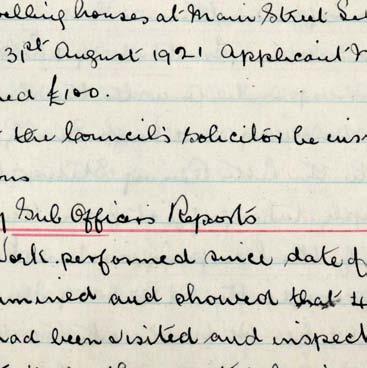 elling houses at Main Street
31st August 1921 Applicant
ed £100.
the Council's solicitor be ins
ons
y Sub Officers Reports
Work performed since date of
mined and showed that 4
had been visited and inspect